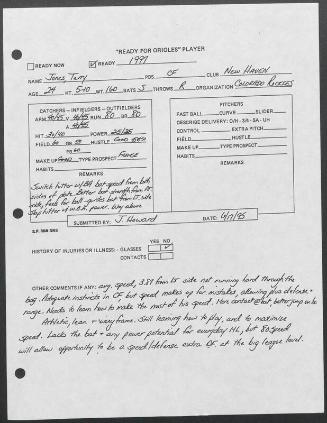 "READY FOR ORIOLES" PLAYER
READY NOW ✓ READY 1997
NAME Jones, Terry POS. CF CLUB New Haven
AGE 24 HT. 5-10 WT. 160 BATS S THROWS R ORGANIZATION Colorado Rockies
CATCHERS - INFIELDERS - OUTFIELDERS
ARM 40/45 RUN 80 OD 80
HIT 30/40 POWER 20/25
FIELD 50 HUSTLE Good
MAKE UP Good TYPE PROSPECT Fringe
HABITS
REMARKS
Switch hitter w/ bat speed from both
sides of plate. Better bat strength from RT
side, feel for ball strikes but from LT side.
Slap hitter w/ power. Way above
S.P. 50M SMS
SUBMITTED BY: J. Howard
PITCHERS
FAST BALL CURVE SLIDER
DESCRIBE DELIVERY: O/H - 3/4 - SA - UH
CONTROL EXTRA PITCH
FIELD HUSTLE
MAKE UP TYPE PROSPECT
HABITS
REMARKS
DATE: 4/17/95
YES NO
HISTORY OF INJURIES OR ILLNESS: - GLASSES ✓
CONTACTS
OTHER COMMENTS IF ANY: avg. speed, 3.81 from LT side not running hard through the
bag. Adequate instincts in CF but speed makes up for mistakes, allowing plus defense +
range. Needs to learn how to make the most of his speed. Non contact @ bat, better jump on ball.
Athletic, lean + wiry frame. Still learning how to play, and to maximize
speed. Lacks the bat + any power potential for everyday ML, but 80 speed
will allow opportunity to be a speed/defense extra OF at the big league level.